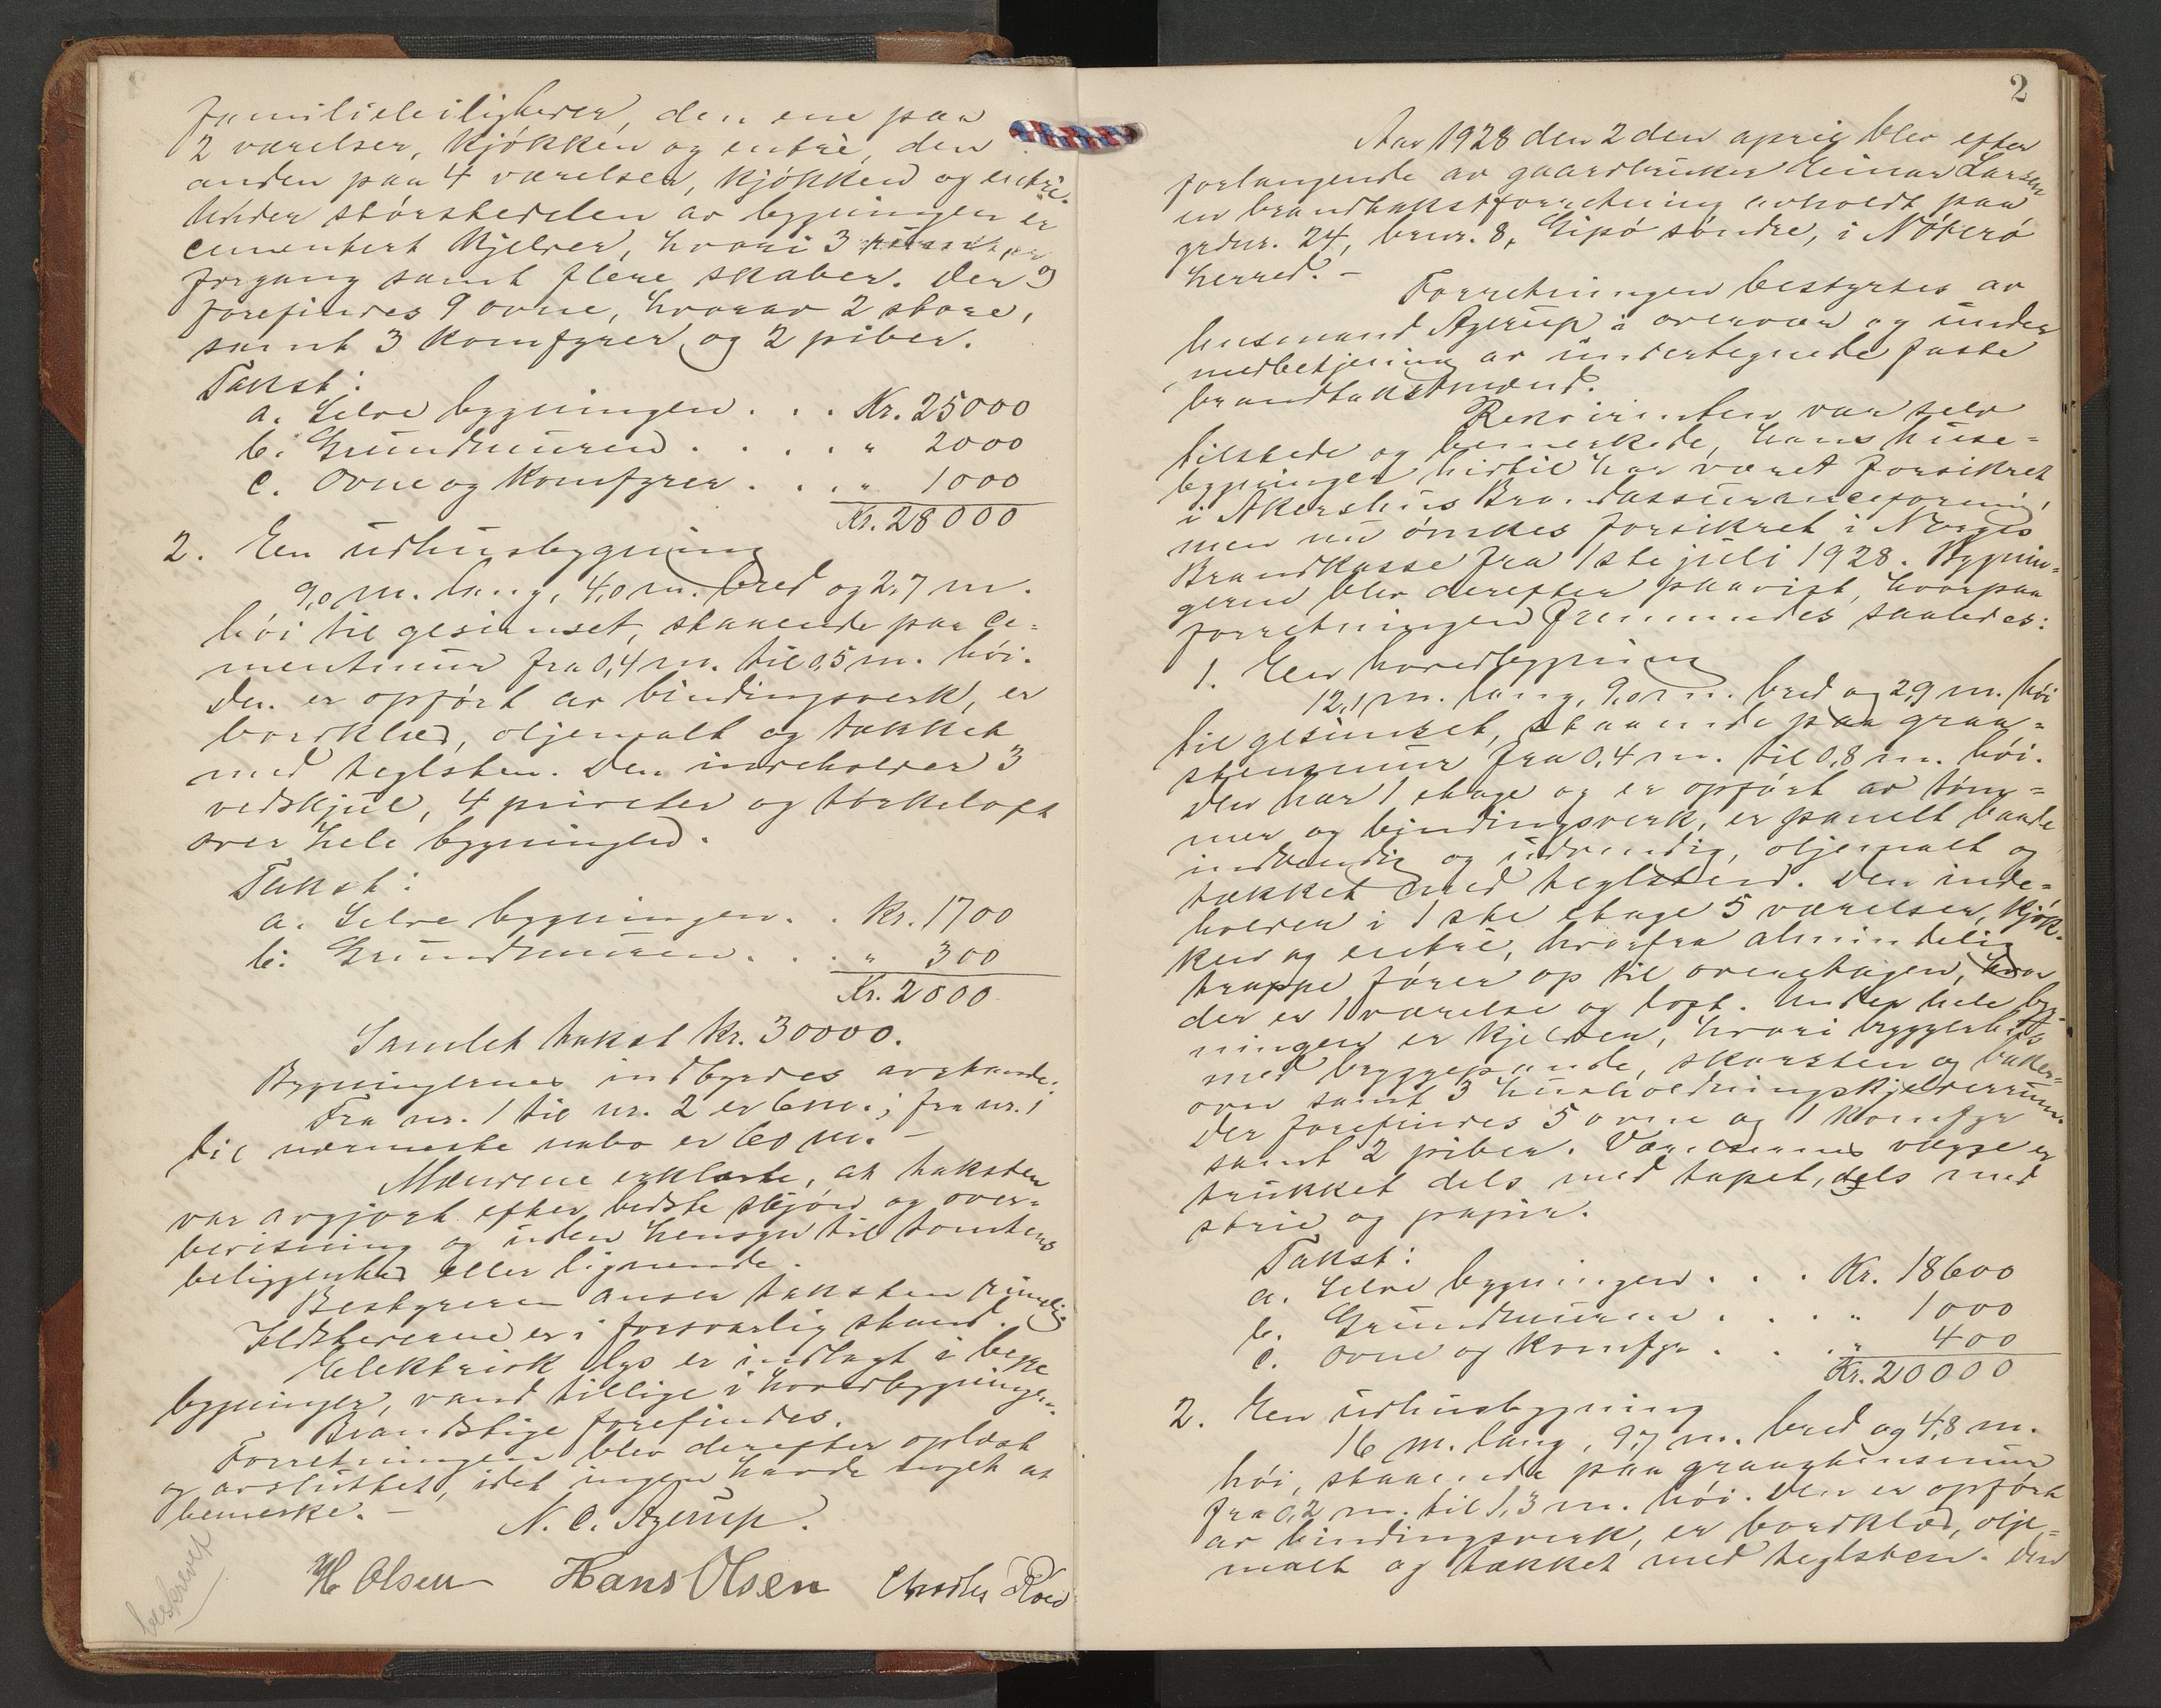 familieleiligheder, den ene paa
2 værelser, kjøkken og entré, den
anden paa 4 værelser, kjøkken og entré.
Under størstedelen av bygningen er
cementert kjelder, hvori 3
forgang samt flere skaber. Der
forefindes 9 ovne, hvorav 2 store,
samt 3 komfyrer og 2 piber.
Takst:
a. Selve bygningen . . . Kr. 25000
b. Grundmuren . . . . " 2000
c. Ovne og komfyrer . . . " 1000
Kr. 28000
2. En udhusbygning
9,0 m. lang, 4,0 m. bred og 2,7 m.
høi til gesimset, staaende paa ce=
mentmur fra 0,4 m. til 0,5 m. høi.
Den er opført av bindingsverk, er
bordklæd, oljemalt og tækket
med teglsten. Den indeholder 3
vedskjul, 4 priveter og tørkeloft
over hele bygningen.
Takst:
a. Selve bygningen . . Kr. 1700
b. Grundmuren . . . " 300
Kr. 2000
Samlet takst kr. 30000.
Bygningernes indbyrdes avstande:
Fra nr. 1 til nr. 2 er 6 m.; fra nr. 1
til nærmeste nabo er 60 m. –
Mændene erklærte, at taksten
var avgjort efter bedste skjøn og over=
bevisning og uden hensyn til tomtens
beliggenhed eller lignende.
Bestyreren anser taksten rimelig
Ildstederne er i forsvarlig stand.
Elektrisk lys er indlagt i begge
bygninger, vand tillige i hovedbygningen.
Brandstige forefindes.
Forretningen blev derefter oplæst
og avsluttet, idet ingen havde noget at
bemerke. –
N. C. Agerup.
H Olsen Hans Olsen Charles Roed
beskrevet
2
Aar 1928 den 2den april blev efter
forlangende av gaardbruker Einar Larsen
en brandtakstforretning avholdt paa
grdnr. 24, brnr. 8, Gipø søndre, i Nøterø
herred. –
Forretningen bestyrtes av
lensmand Agerup i overvær og under
medbetjening av undertegnede faste
brandtakstmænd.
Rekvirenten var selv
tilstede og bemerkede, hans huse=
bygninger hidtil har været forsikret
i Akershus Brandassuranceforening,
men nu ønskes forsikret i Norges
Brandkasse fra 1ste juli 1928. Bygnin=
gerne blev derefter paavist, hvorpaa
forretningen fremmedes saaledes:
1. En hovedbygning
12,1 m. lang, 9,0 m. bred og 2,9 m. høi
til gesimset, staaende paa graa=
stensmur fra 0,4 m. til 0,8 m. høi.
Den har 1 etage og er opført av tøm=
mer og bindingsverk, er panelt baade
indvendig og udvendig, oljemalt og
tækket med teglsten. Den inde=
holder i 1ste etage 5 værelser, kjøk=
ken og entré, hvorfra almindelig
trappe fører op til overetagen, hvor
der er 1 værelse og loft. Under hele byg=
ningen er kjelder, hvori bryggerhus
med bryggepande, skorsten og baker=
ovn samt 3 husholdningskjelderrum.
Der forefindes 5 ovne og 1 komfyr
samt 2 piber. Værelsernes vægge er
trukket dels med tapet, dels med
strie og papir.
Takst:
a. Selve bygningen . . . Kr. 18600
b. Grundmuren . . . . " 1000
c. Ovne og komfyr . . . " 400
Kr. 20000
2. En udhusbygning
16 m. lang, 9,7 m. bred og 4,8 m.
høi, staaende paa graastensmur
fra 0,2 m. til 1,3 m. høi. Den er opført
av bindingsverk, er bordklæd, olje=
malt og tækket med teglsten. Den